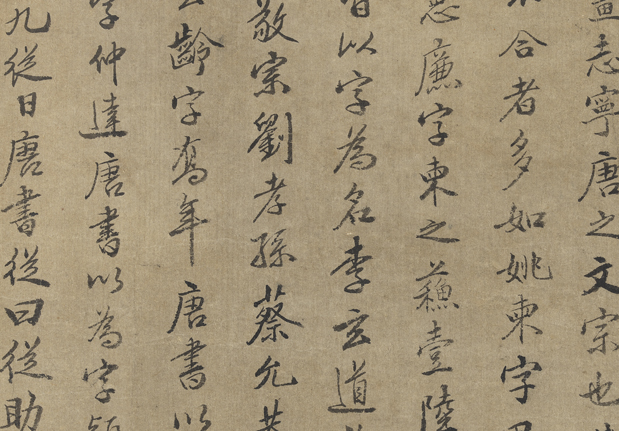 志寧唐之文宗也
合者多如姚柬字
思廉字柬之蘓壹陸
皆以字為名李玄道
敬宗劉孝孫蔡允恭
齡字喬年唐書以
字仲達唐書以為字穎
九從日唐書從曰從助